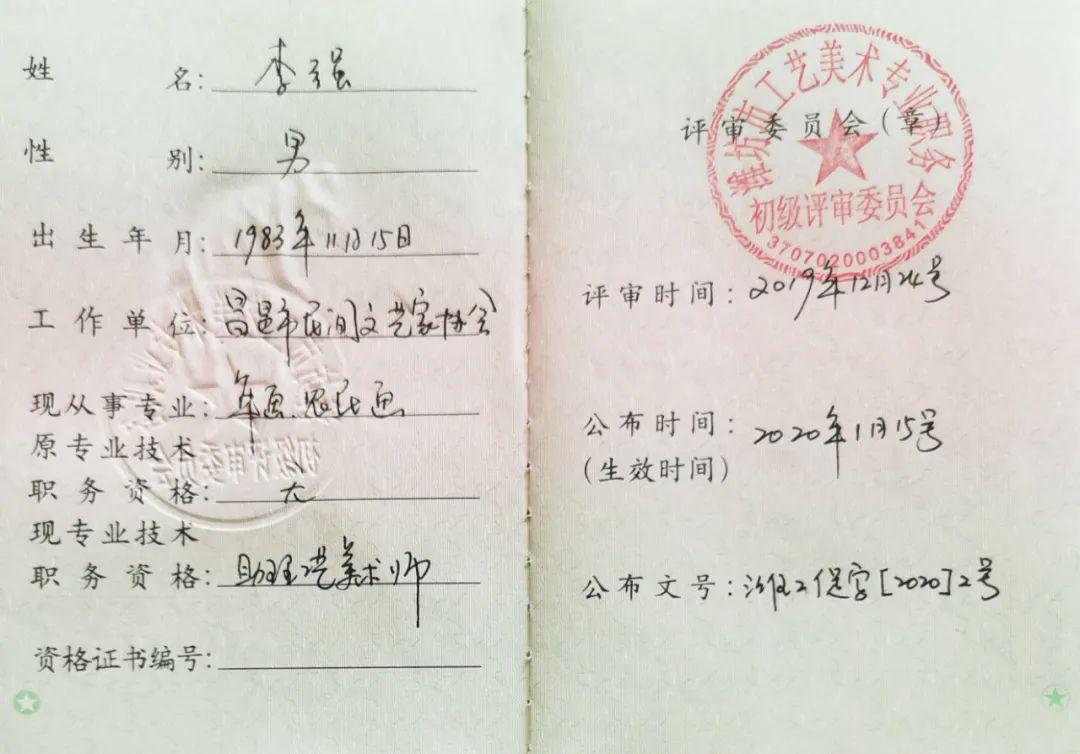 姓 名: 李强
性 别: 男
出生年月: 1983年11月15日
工作单位: 昌邑市民间文艺家协会
现从事专业: 年画.农民画
原专业技术
职务资格: 无
现专业技术
职务资格: 助理工艺美术师
资格证书编号:
潍坊市工艺美术专业职务
评审委员会(章)
初级评审委员会
3707020003841
评审时间: 2019年12月24号
公布时间: 2020年1月15号
(生效时间)
公布文号: 潍工促字[2020]2号
初级评审委员会